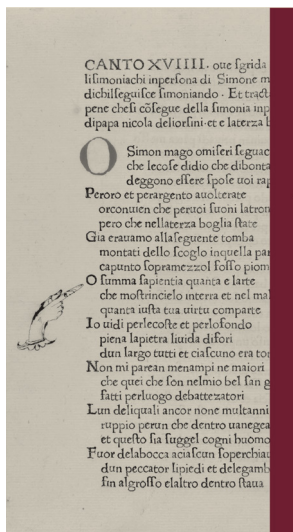 CANTO XVIIII. oue ſgrida
liſimoniachi inperſona di Simone m
dichilſeguiſce ſimoniando. Et tract
pene cheſi cõſegue della ſimonia inp
dipapa nicola deliorſini. et e laterza b
O Simon mago omiſeri ſeguac
che lecoſe didio che dibonta
deggono eſſere ſpoſe uoi rap
Peroro et perargento auolterate
orconuien che peruoi ſuoni latron
pero che nellaterza boglia ſtate
Gia erauamo allaſeguente tomba
montati dello ſcoglo inquella par
capunto ſopramezzol foſſo piom
O ſumma ſapientia quanta e larte
che moſtrincielo interra et nel mal
quanta iuſta tua uirtu comparte
Io uidi perlecoſte et perlofondo
piena lapietra liuida difori
dun largo tutti et ciaſcuno era ton
Non mi parean menampi ne maiori
che quei che ſon nelmio bel ſan g
fatti perluogo debattezatori
Lun deliquali ancor none multanni
ruppio perun che dentro uanegea
et queſto ſia ſuggel cogni huomo
Fuor delabocca aciaſcun ſoperchiau
dun peccator lipiedi et delegamb
fin algroſſo elaltro dentro ſtaua